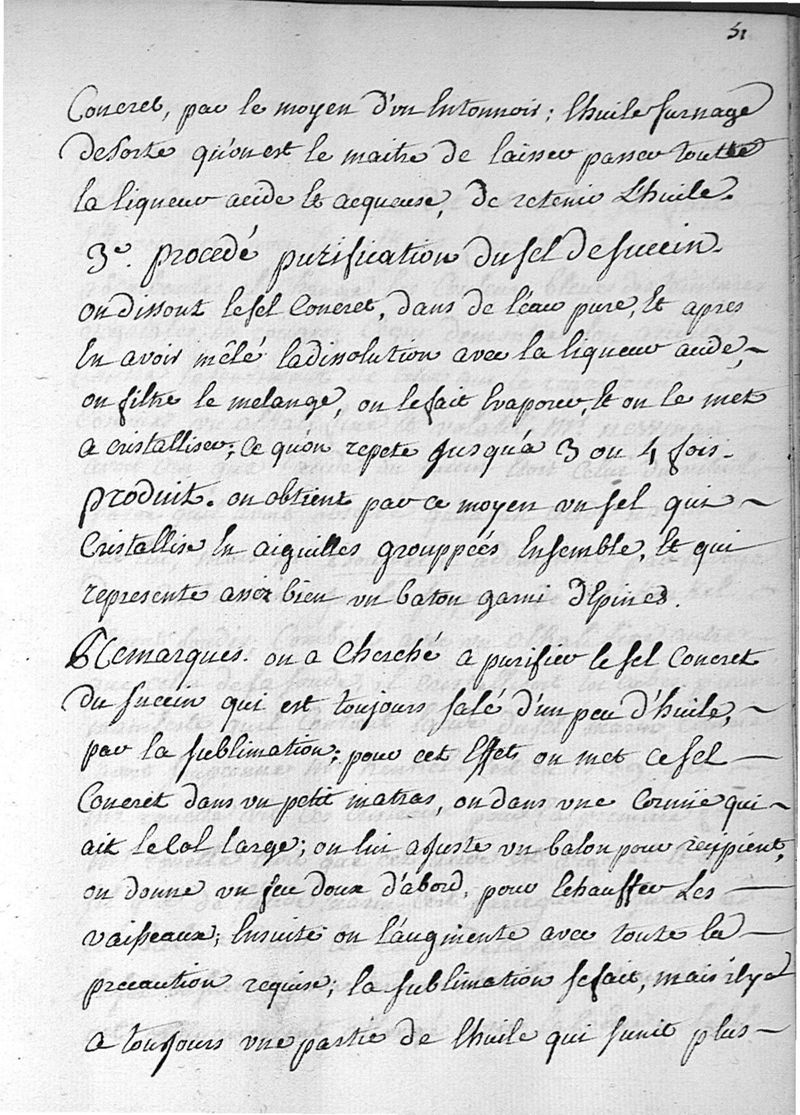 51
Concret, par le moyen d'un Entonnoir; l'huile surnage
desorte qu'on est le maitre de laisser passer toutte
la liqueur acide Et acqueuse, de retenir L'huile.
3e. procedé purification du sel de succin.
on dissout le sel Concret, dans de l'eau pure, Et apres
En avoir mêlé la dissolution avec la liqueur acide,
on filtre le melange, on le fait Evaporer, Et on le met
a cristalliser; ce qu'on repete jusqu'a 3 ou 4 fois.
produit. on obtient par ce moyen un sel qui
Cristallise En aiguilles grouppeés Ensemble, Et qui
represente assez bien un baton garni d'Epines.
Remarques. on a Cherché a purifier le sel Concret
du succin qui est toujours salé d'un peu d'huile,
par la sublimation; pour cet Effet, on met ce sel
Concret dans un petit matras, ou dans une Cornüe qui
ait le Col large; on lui ajuste un balon pour recipient,
on donne un feu doux d'abord, pour Echauffer Les
vaisseaux; Ensuite on l'augmente avec toute la
precaution requise; la sublimation se fait, mais il y a
a toujours une partie de l'huile qui s'unit plus